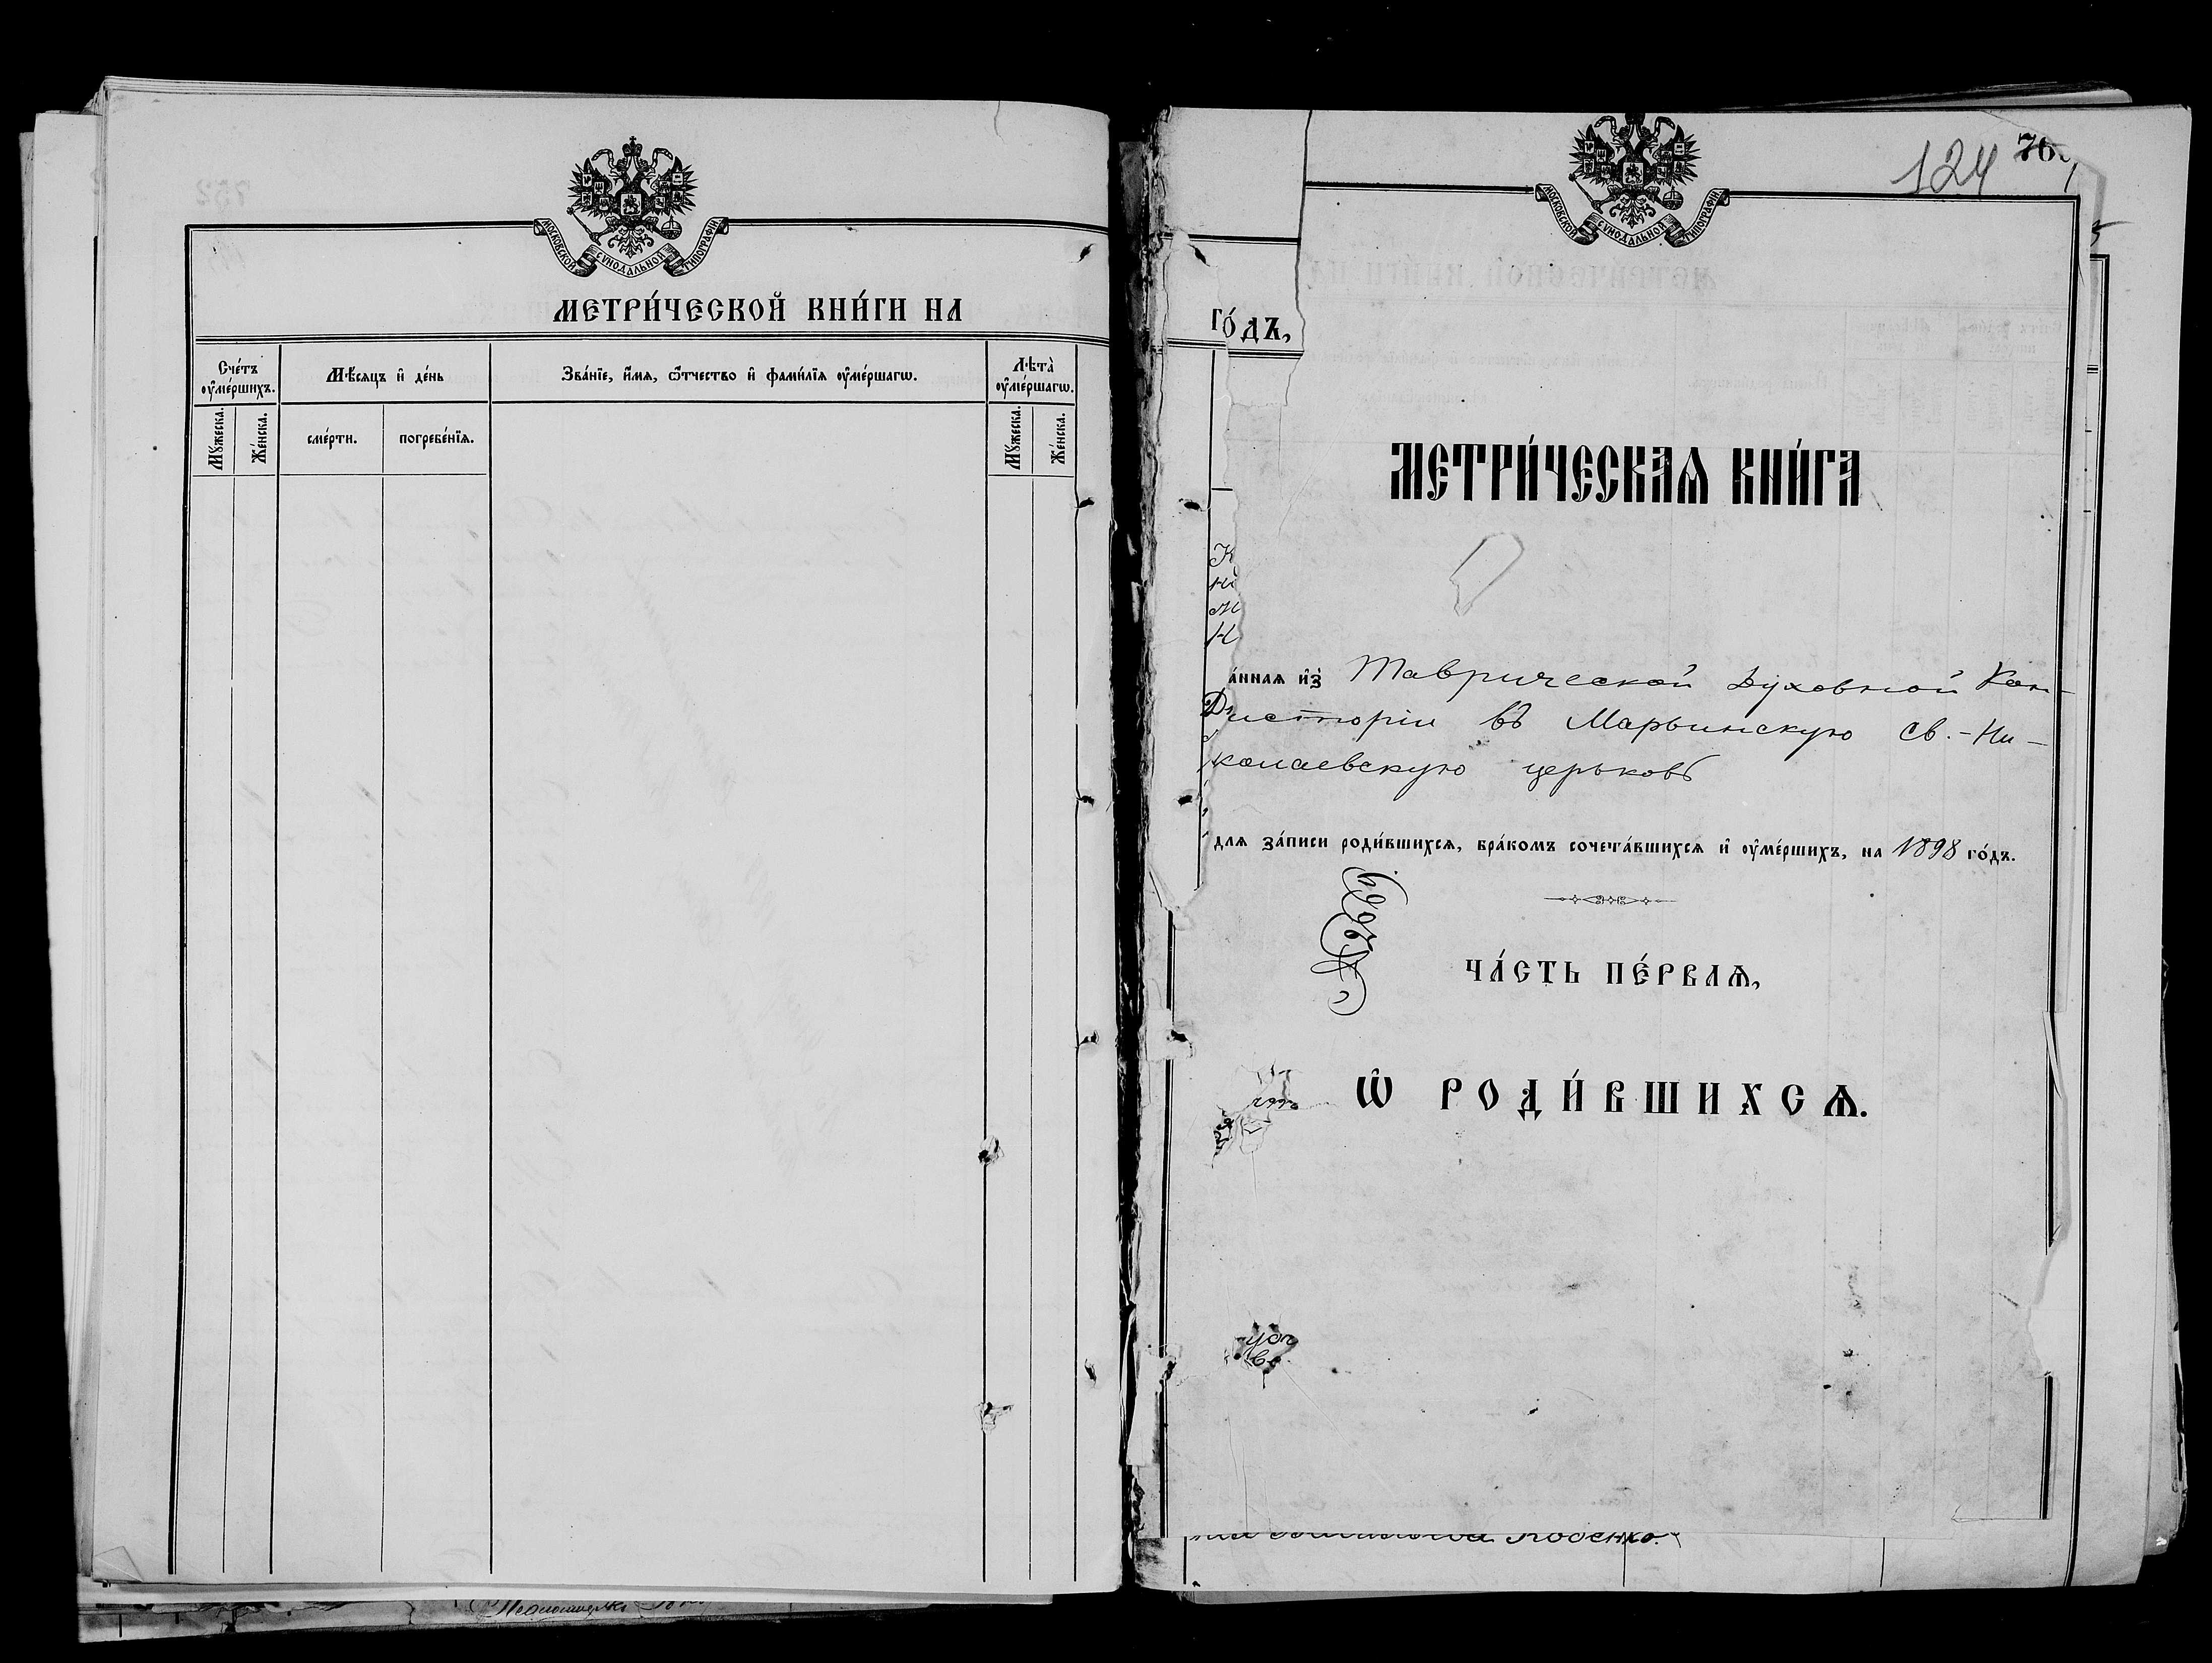 МОСКОВСКОЙ СѴНОДАЛЬНОЙ ТИПОГРАФІИ
МЕТРИ́ЧЕСКОЙ КНИ́ГИ НА
Сче́тъ ᲂу҆ме́ршихъ.
Мѣ́сяцъ и҆ де́нь
Зва́нїе, и҆́мѧ, ѻ҆́тчество и҆ фами́лїѧ ᲂу҆ме́ршагѡ.
Лѣ́та ᲂу҆ме́ршагѡ.
Мꙋ́жеска.
Же́нска.
сме́рти.
погребе́нїѧ.
Мꙋ́жеска.
Же́нска.
124
МОСКОВСКОЙ СѴНОДАЛЬНОЙ ТИПОГРАФІИ
ГО́ДЪ,
МЕТРИ́ЧЕСКАѦ КНИ́ГА
а́ннаѧ и҆з̾ Таврической Духовной Кон-
систоріи въ Марьинскую св.-Ни-
колаевскую церковь
длѧ за́писи роди́вшихсѧ, бра́комъ сочета́вшихсѧ и҆ ᲂу҆ме́ршихъ, на 1898 го́дъ.
ЧА́СТЬ ПЕ́РВАѦ,
Ѡ҆ РОДИ́ВШИХСѦ.